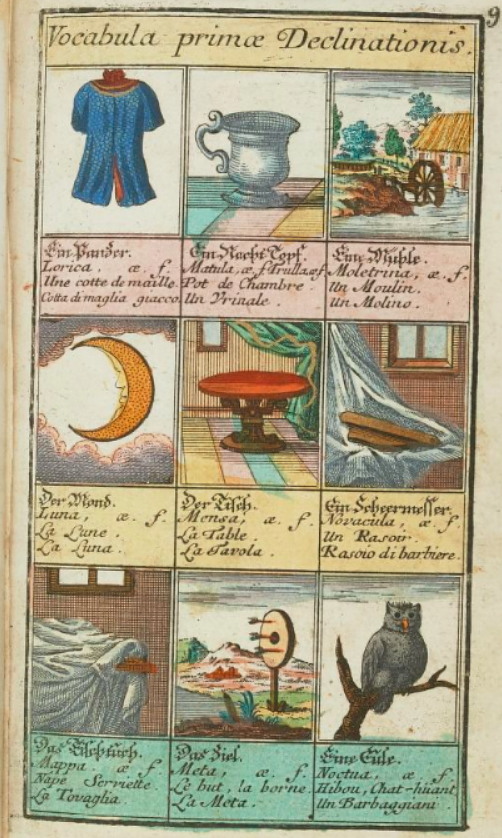 9
Vocabula primæ Declinationis.
Ein Panzer.
Lorica, æ f.
Une cotte de maille.
Cotta di maglia giacco.
Ein Nacht Topf.
Matula, æ, f. Trulla æ f.
Pot de Chambre
Un Vrinale.
Eine Mühle.
Moletrina, æ. f.
Un Moulin.
Un Molino.
Der Mond.
Luna, æ. f.
La Lune.
La Luna.
Der Tisch.
Mensa, æ. f.
La Table.
La Tavola.
Ein Scheermesser.
Novacula, æ. f.
Un Rasoir.
Rasoio di barbiere.
Das Tischtuch.
Mappa. æ f.
Nape Serviette
La Tovaglia.
Das Ziel.
Meta, æ. f.
Le but, la borne.
La Meta.
Eine Eule.
Noctua, æ. f.
Hibou, Chat-huant
Un Barbaggiani.